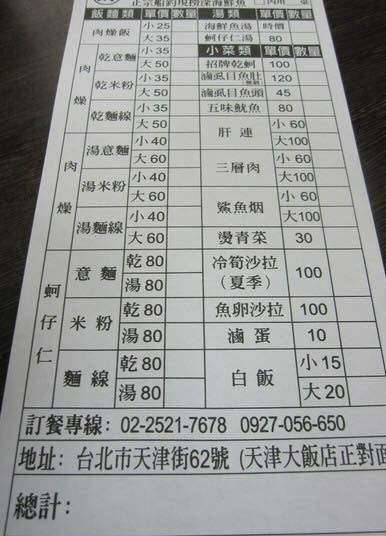 正宗船釣現撈深海鮮魚
飯麵類 單價 數量 湯類 單價 數量
肉燥飯 小 25 海鮮魚湯 時價
大 35 蚵仔仁湯 80
肉燥 乾意麵 小 35 小菜類 單價 數量
大 50 招牌乾蚵 100
乾米粉 小 35 滷虱目魚肚 120
大 50 滷虱目魚頭 45
乾麵線 小 35 五味魷魚 80
大 50 肝連 小 60
肉燥 湯意麵 小 40 大100
大 60 三層肉 小 60
湯米粉 小 40 大100
大 60 鯊魚烟 小 60
湯麵線 小 40 大100
大 60 燙青菜 30
蚵仔仁 意麵 乾 80 冷筍沙拉 100
湯 80 (夏季)
米粉 乾 80 魚卵沙拉 100
湯 80 滷蛋 10
麵線 乾 80 白飯 小 15
湯 80 大 20
訂餐專線: 02-2521-7678 0927-056-650
地址: 台北市天津街62號 (天津大飯店正對面
總計: